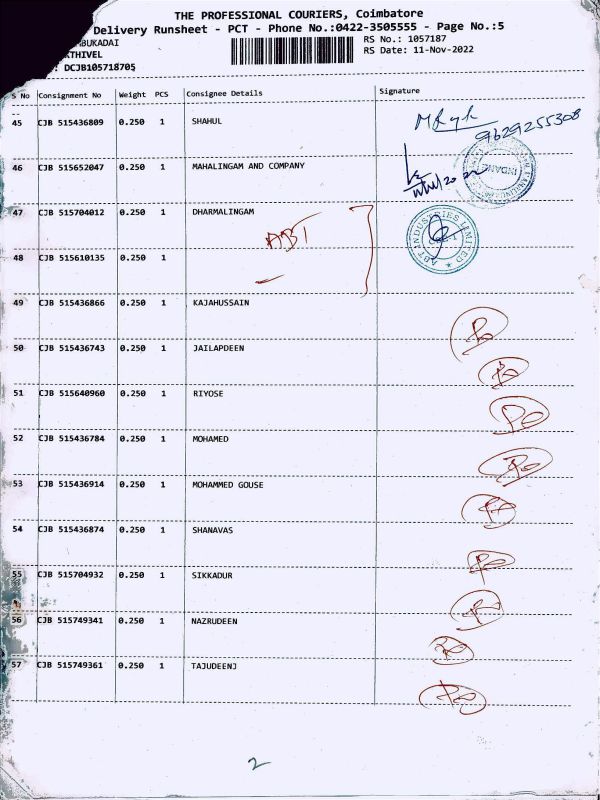 THE PROFESSIONAL COURIERS, Coimbatore
Delivery Runsheet - PCT - Phone No.:0422-3505555 - Page No.:5
MBUKADAI
RS No.: 1057187
ATHIVEL
RS Date: 11-Nov-2022
: DCJB105718705
S No Consignment No Weight PCS Consignee Details Signature
45 CJB 515436809 0.250 1 SHAHUL
9629255308
46 CJB 515652047 0.250 1 MAHALINGAM AND COMPANY
INDANE
47 CJB 515704012 0.250 1 DHARMALINGAM
ABT
ABT INDUSTRIES LIMITED
48 CJB 515610135 0.250 1
49 CJB 515436866 0.250 1 KAJAHUSSAIN
50 CJB 515436743 0.250 1 JAILAPDEEN
51 CJB 515640960 0.250 1 RIYOSE
52 CJB 515436784 0.250 1 MOHAMED
53 CJB 515436914 0.250 1 MOHAMMED GOUSE
54 CJB 515436874 0.250 1 SHANAVAS
55 CJB 515704932 0.250 1 SIKKADUR
56 CJB 515749341 0.250 1 NAZRUDEEN
57 CJB 515749361 0.250 1 TAJUDEENJ
2